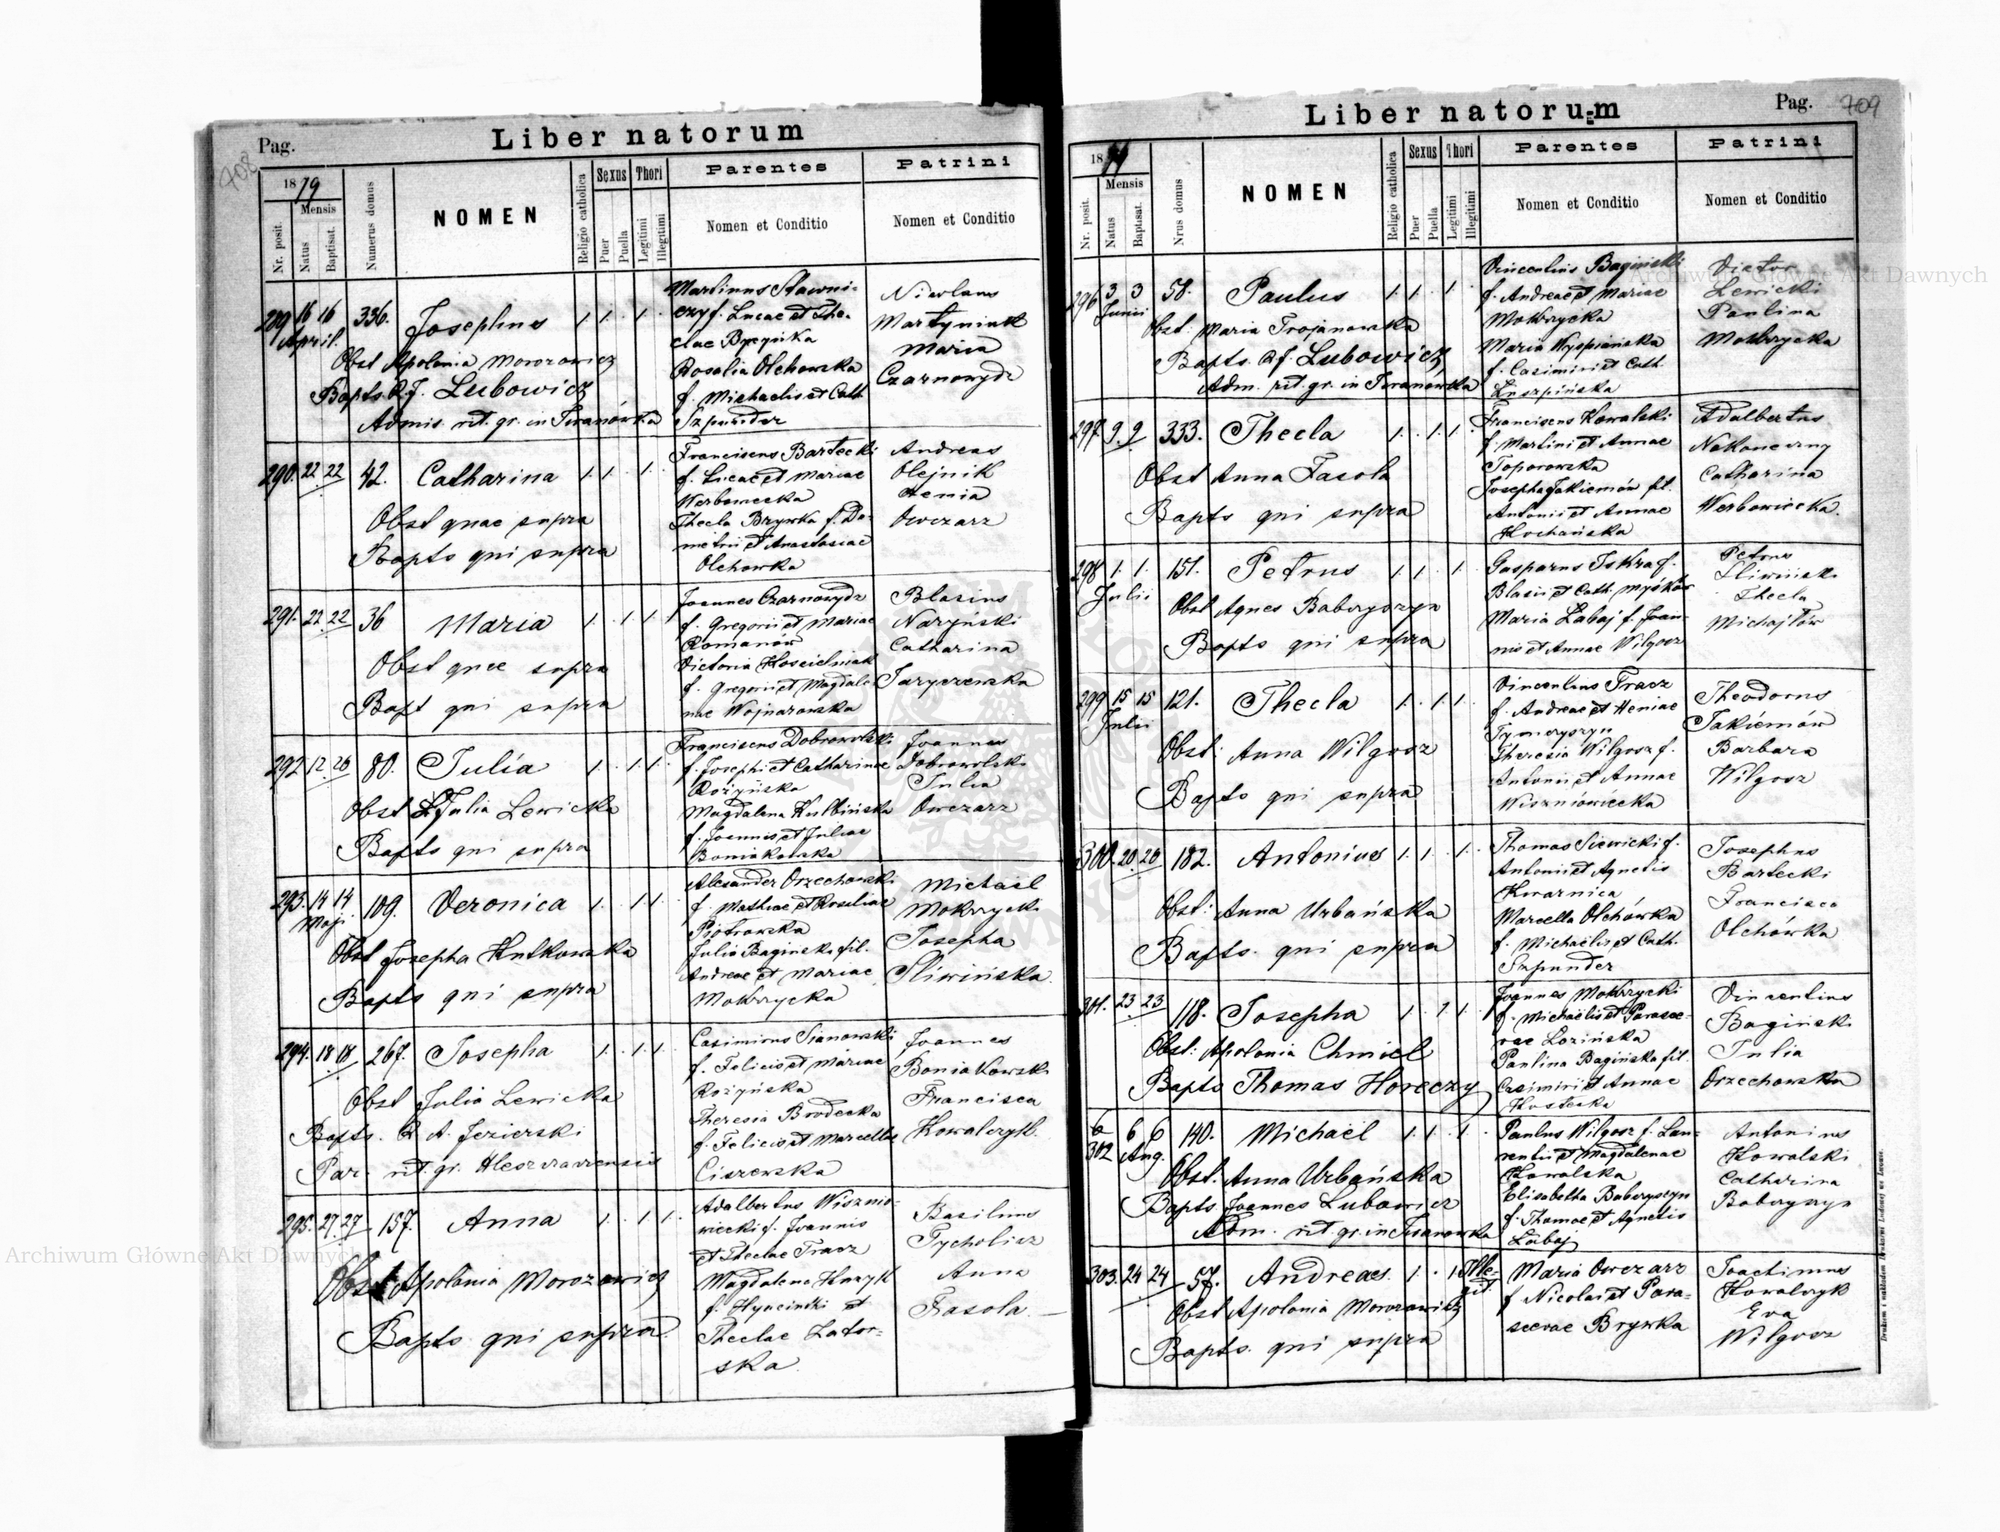 Pag.
Liber natorum
708
1879
Nr. posit.
Mensis
Natus
Baptisat.
Numerus domus
NOMEN
Religio catholica
Sexus
Puer
Puella
Thori
Legitimi
Illegitimi
Parentes
Nomen et Conditio
Patrini
Nomen et Conditio
289 16 16 336. Josephus 1. 1. 1.
April.
Obst Apolonia Morozowicz
Bapts. Q. J. Lubowicz
Admis. rit. gr. in Iwanówka
Martinus Sławni-
czy f. Lucae et The-
clae
Rosalia Olchowska
f. Michaelis et Cath
Szpunder
Nicolaus
Martyniuk
Maria
Czarnowydz
290. 22 22 42. Catharina 1. 1. 1.
Obst quae supra
Bapts qui supra
Franciscus Bartecki
f. Lucae et Mariae
Werbowecka
Thecla Brywka f. De-
metrii et Anastasiae
Olchowka
Andreas
Olejnik
Xenia
Owczarz
291. 22 22 36 Maria 1. 1. 1
Obst quae supra
Bapt qui supra
Joannes Czarnowydz
f. Gregorii et Mariae
Romanów
Victoria Kościelniak
f. Gregorii et Magdale-
nae Wojnarowska
Blasius
Naryński
Catharina
Jaryczewska
292 12 26 80. Julia 1. 1. 1.
Obst Julia Lewicka
Bapts qui supra
Franciscus Dobrowolski
f. Josephi et Catharinae
Rożyńska
Magdalena Kulbińska
f. Joannis et Juliae
Boniakowska
Joannes
Dobrowolski
Julia
Owczarz
293. 14 14 109. Veronica 1. 1. 1
Maji.
Obst Josepha Hutkowska
Bapts qui supra
Alexander Orzechowski
f. Mathiae et Rosaliae
Piotrowska
Julia Bagińska fil.
Andreae et Mariae
Mokrzycka
Michaël
Mokrzycki
Josepha
Śliwińska.
294. 18 18 267. Josepha 1. 1. 1.
Obst Julia Lewicka
Bapts. Q A. Jezierski
Par. rit. gr.
Casimirus Sianowski
f. Felicis et Mariae
Rożyńska
Theresia Brodecka
f. Felicis et Marcellae
Ciszewska
Joannes
Boniakowski
Francisca
Kowalczyk.
295. 27. 27 157. Anna 1. 1. 1.
Obst. Apolonia Morozowicz
Bapts. qui supra.
Adalbertus Wisznio-
wiecki f. Joannis
et Theclae Tracz
Magdalena Kuzyk
f. Hyacinthi et
Theclae Lator-
ska.
Basilius
Tycholicz
Anna
Frasola.
Liber natorum
Pag. 709
1879
Nr. posit.
Mensis
Natus
Baptisat.
Nrus domus
NOMEN
Religio catholica
Sexus
Puer
Puella
Thori
Legitimi
Illegitimi
Parentes
Nomen et Conditio
Patrini
Nomen et Conditio
296 3 3 58. Paulus 1. 1. 1.
Junii
Obst. Maria Trojanowska
Bapts. Q. J. Lubowicz
Adm. rit. gr. in Iwanówka
Vincentius Bagiński
f. Andreae et Mariae
Mokrzycka
Maria Wyspiańska
f. Casimiri et Cath.
Victor
Lewicki
Paulina
Mokrzycka
297. 9. 9 333. Thecla 1. 1. 1.
Obst Anna Fasola
Bapts qui supra
Franciscus Kowalski
f. Martini et Annae
Toporowska
Josepha Jakiemów fil.
Antonii et Annae
Kochańska
Adalbertus
Nakoneczny
Catharina
Werbowiecka.
298 1. 1. 151. Petrus 1. 1. 1.
Julii
Obst Agnes Baboryszyn
Bapts qui supra
Gasparus Iskra f.
Blasii et Cath. Myśków
Maria Labaj f. Joan-
nis et Annae Wilgosz
Petrus
Śliwiński
Thecla
Michajłów
299 15 15 121. Thecla 1. 1. 1.
Julii
Obst: Anna Wilgosz
Bapts qui supra
Vincentius Tracz
f. Andreae et Xeniae
Tymczyszyn
Theresia Wilgosz f.
Antonii et Annae
Wiszniowiecka
Theodorus
Jakiemów
Barbara
Wilgosz
300. 20. 20 182. Antonius 1. 1. 1.
Obst: Anna Urbańska
Bapts. qui supra
Thomas Siewicki f.
Antonii et Agnetis
Kwarnica
Marcella Olchówka
f. Michaelis et Cath.
Szpunder
Josephus
Bartecki
Francisca
Olchówka
301. 23 23 118. Josepha 1. 1 1.
Obst: Apolonia Chmiel
Bapts Thomas Horeczy
Joannes Mokrzycki
f. Michaelis et Parasce-
vae Lozińska
Paulina Bagińska fil.
Casimiri et Annae
Kostecka
Vincentius
Bagiński
Julia
Orzechowska
6
302 6 6 140. Michaël 1. 1. 1.
Aug.
Obst. Anna Urbańska
Bapts Joannes Lubowicz
Adm. rit. gr. in Iwanówka
Paulus Wilgosz f. Lau-
rentii et Magdalenae
Kowalska
Elisabetha Baboryszyn
f. Thomae et Agnetis
Labaj
Antonius
Kowalski
Catharina
Baboryszyn
303. 24 24 57. Andreas. 1. 1 Ille-
git.
Obst Apolonia Morozowicz
Bapts. qui supra
Maria Owczarz
f. Nicolai et Para-
scevae Brywka
Joachimus
Kowalczyk
Eva
Wilgosz
Drukiem i nakładem Drukarni Ludowej we Lwowie.
Archiwum Główne Akt Dawnych
Archiwum Główne Akt Dawnych